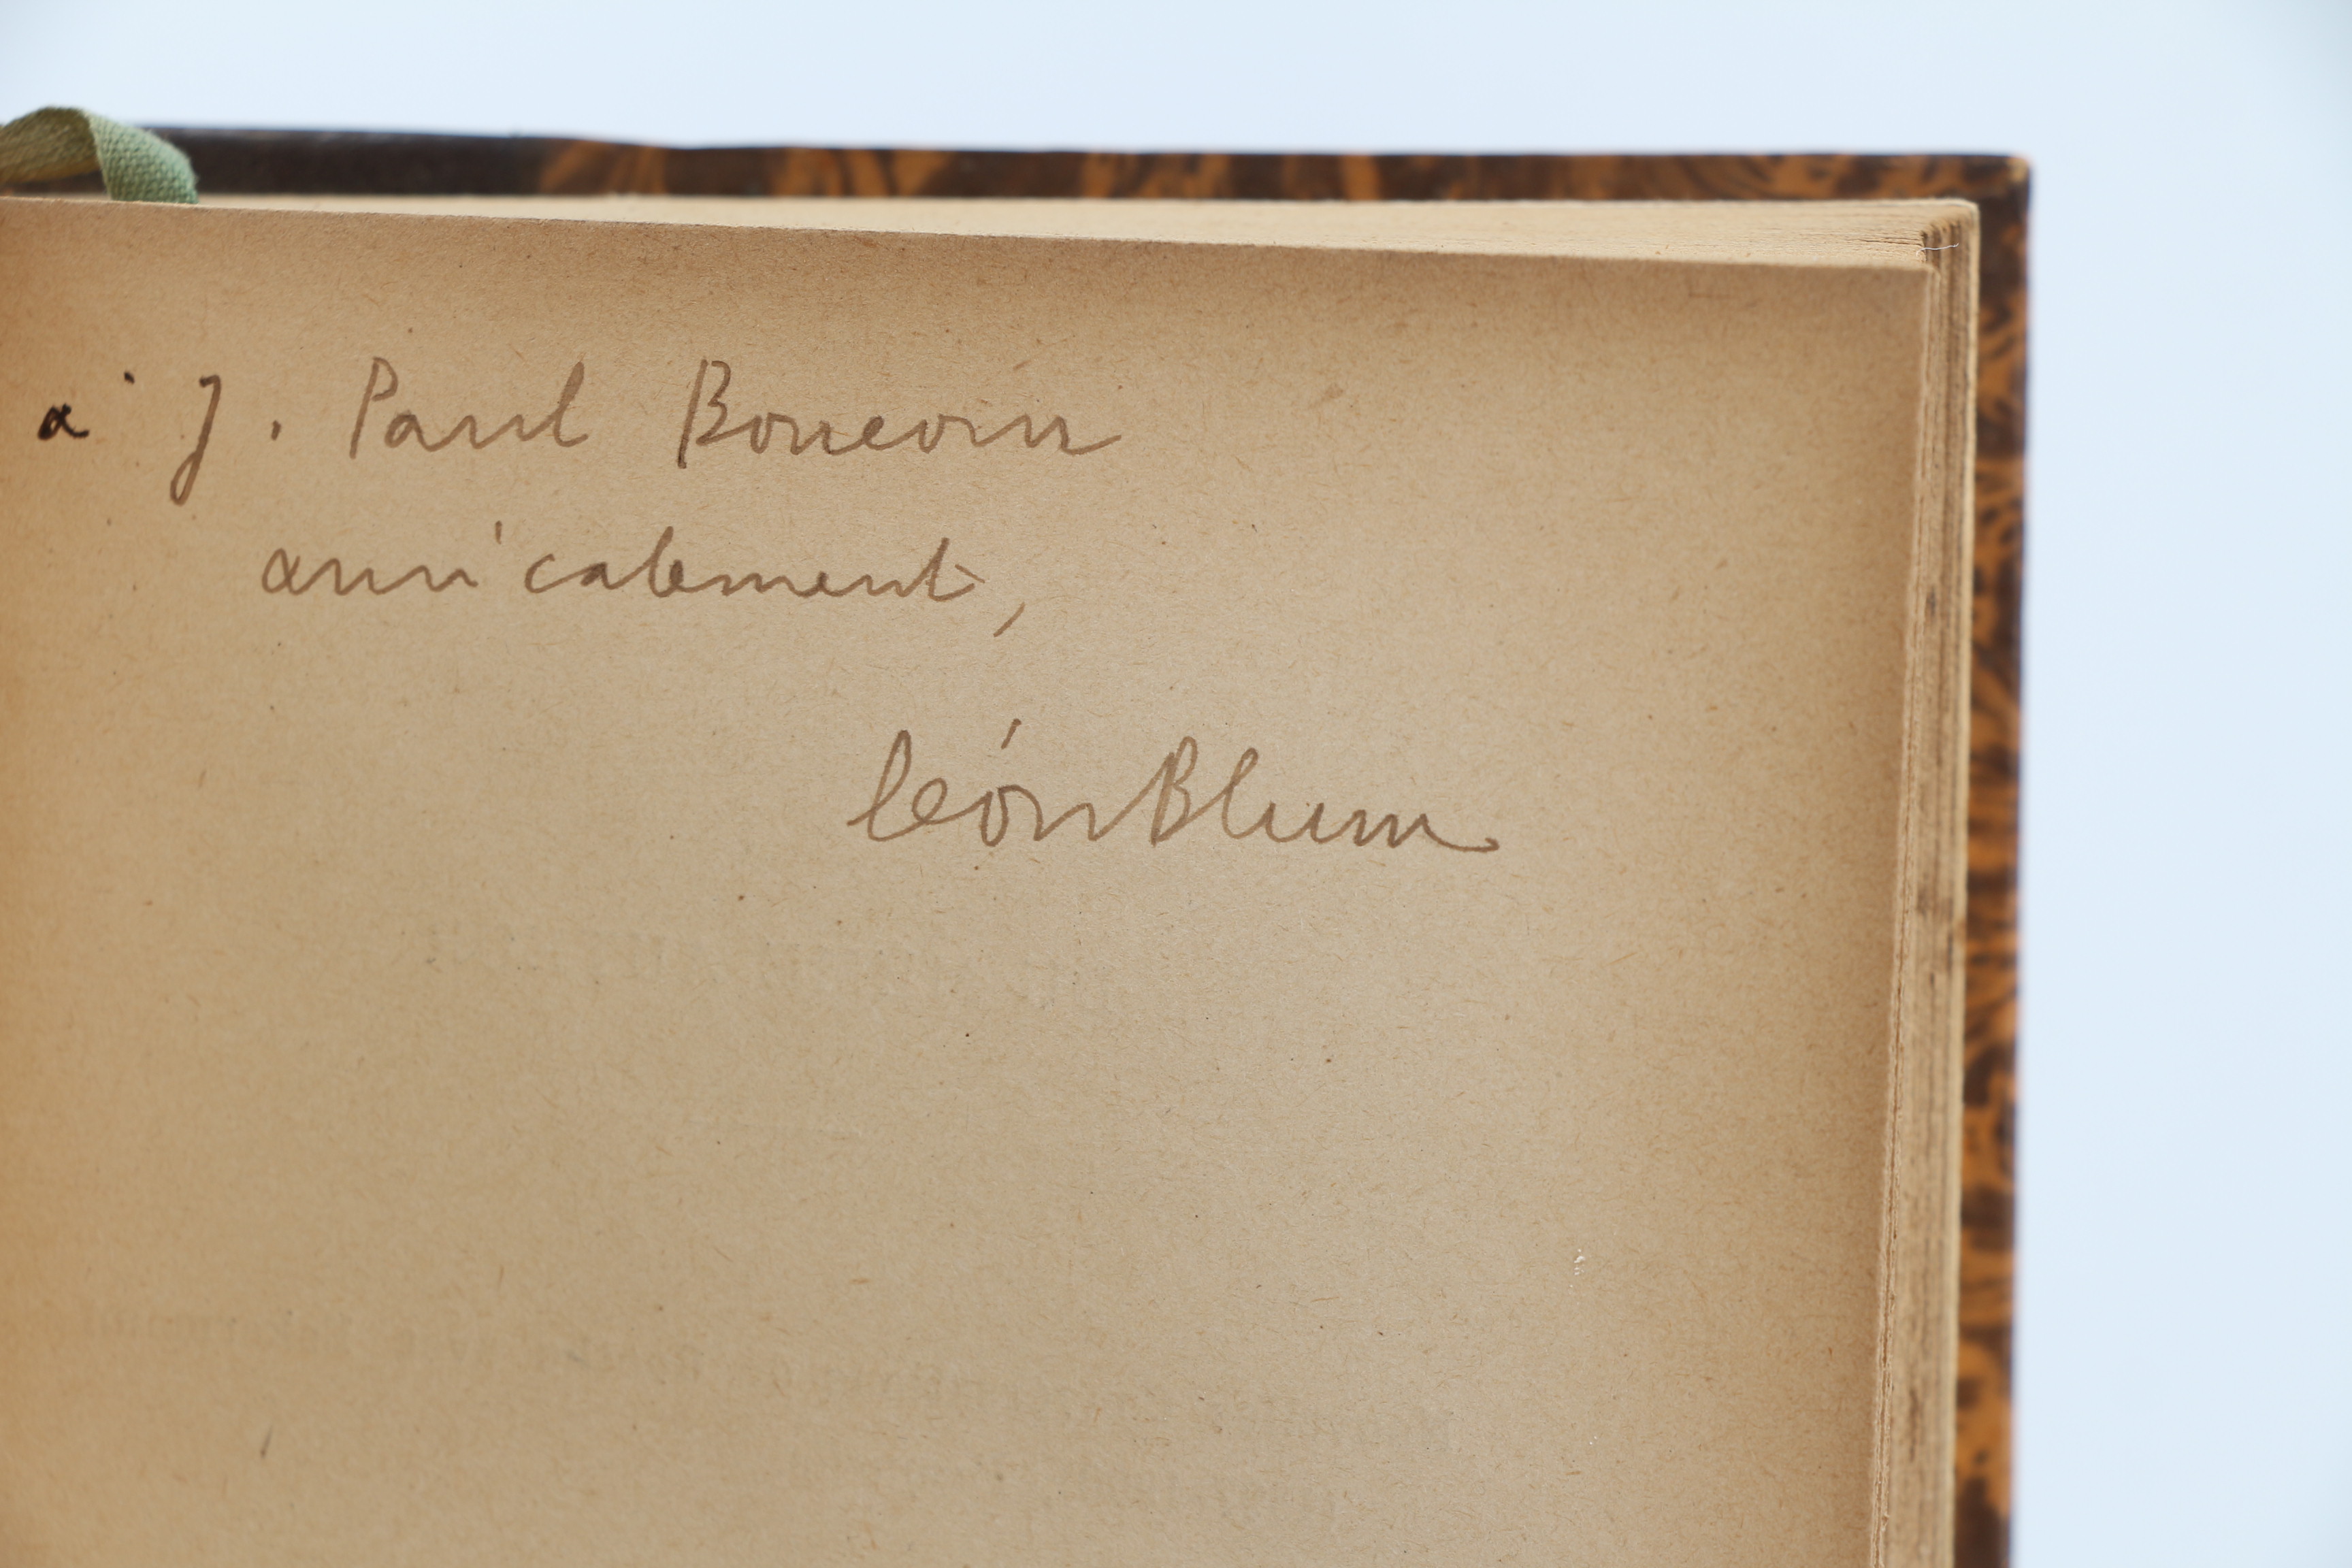 à J. Paul Boncour
amicalement,
Léon Blum